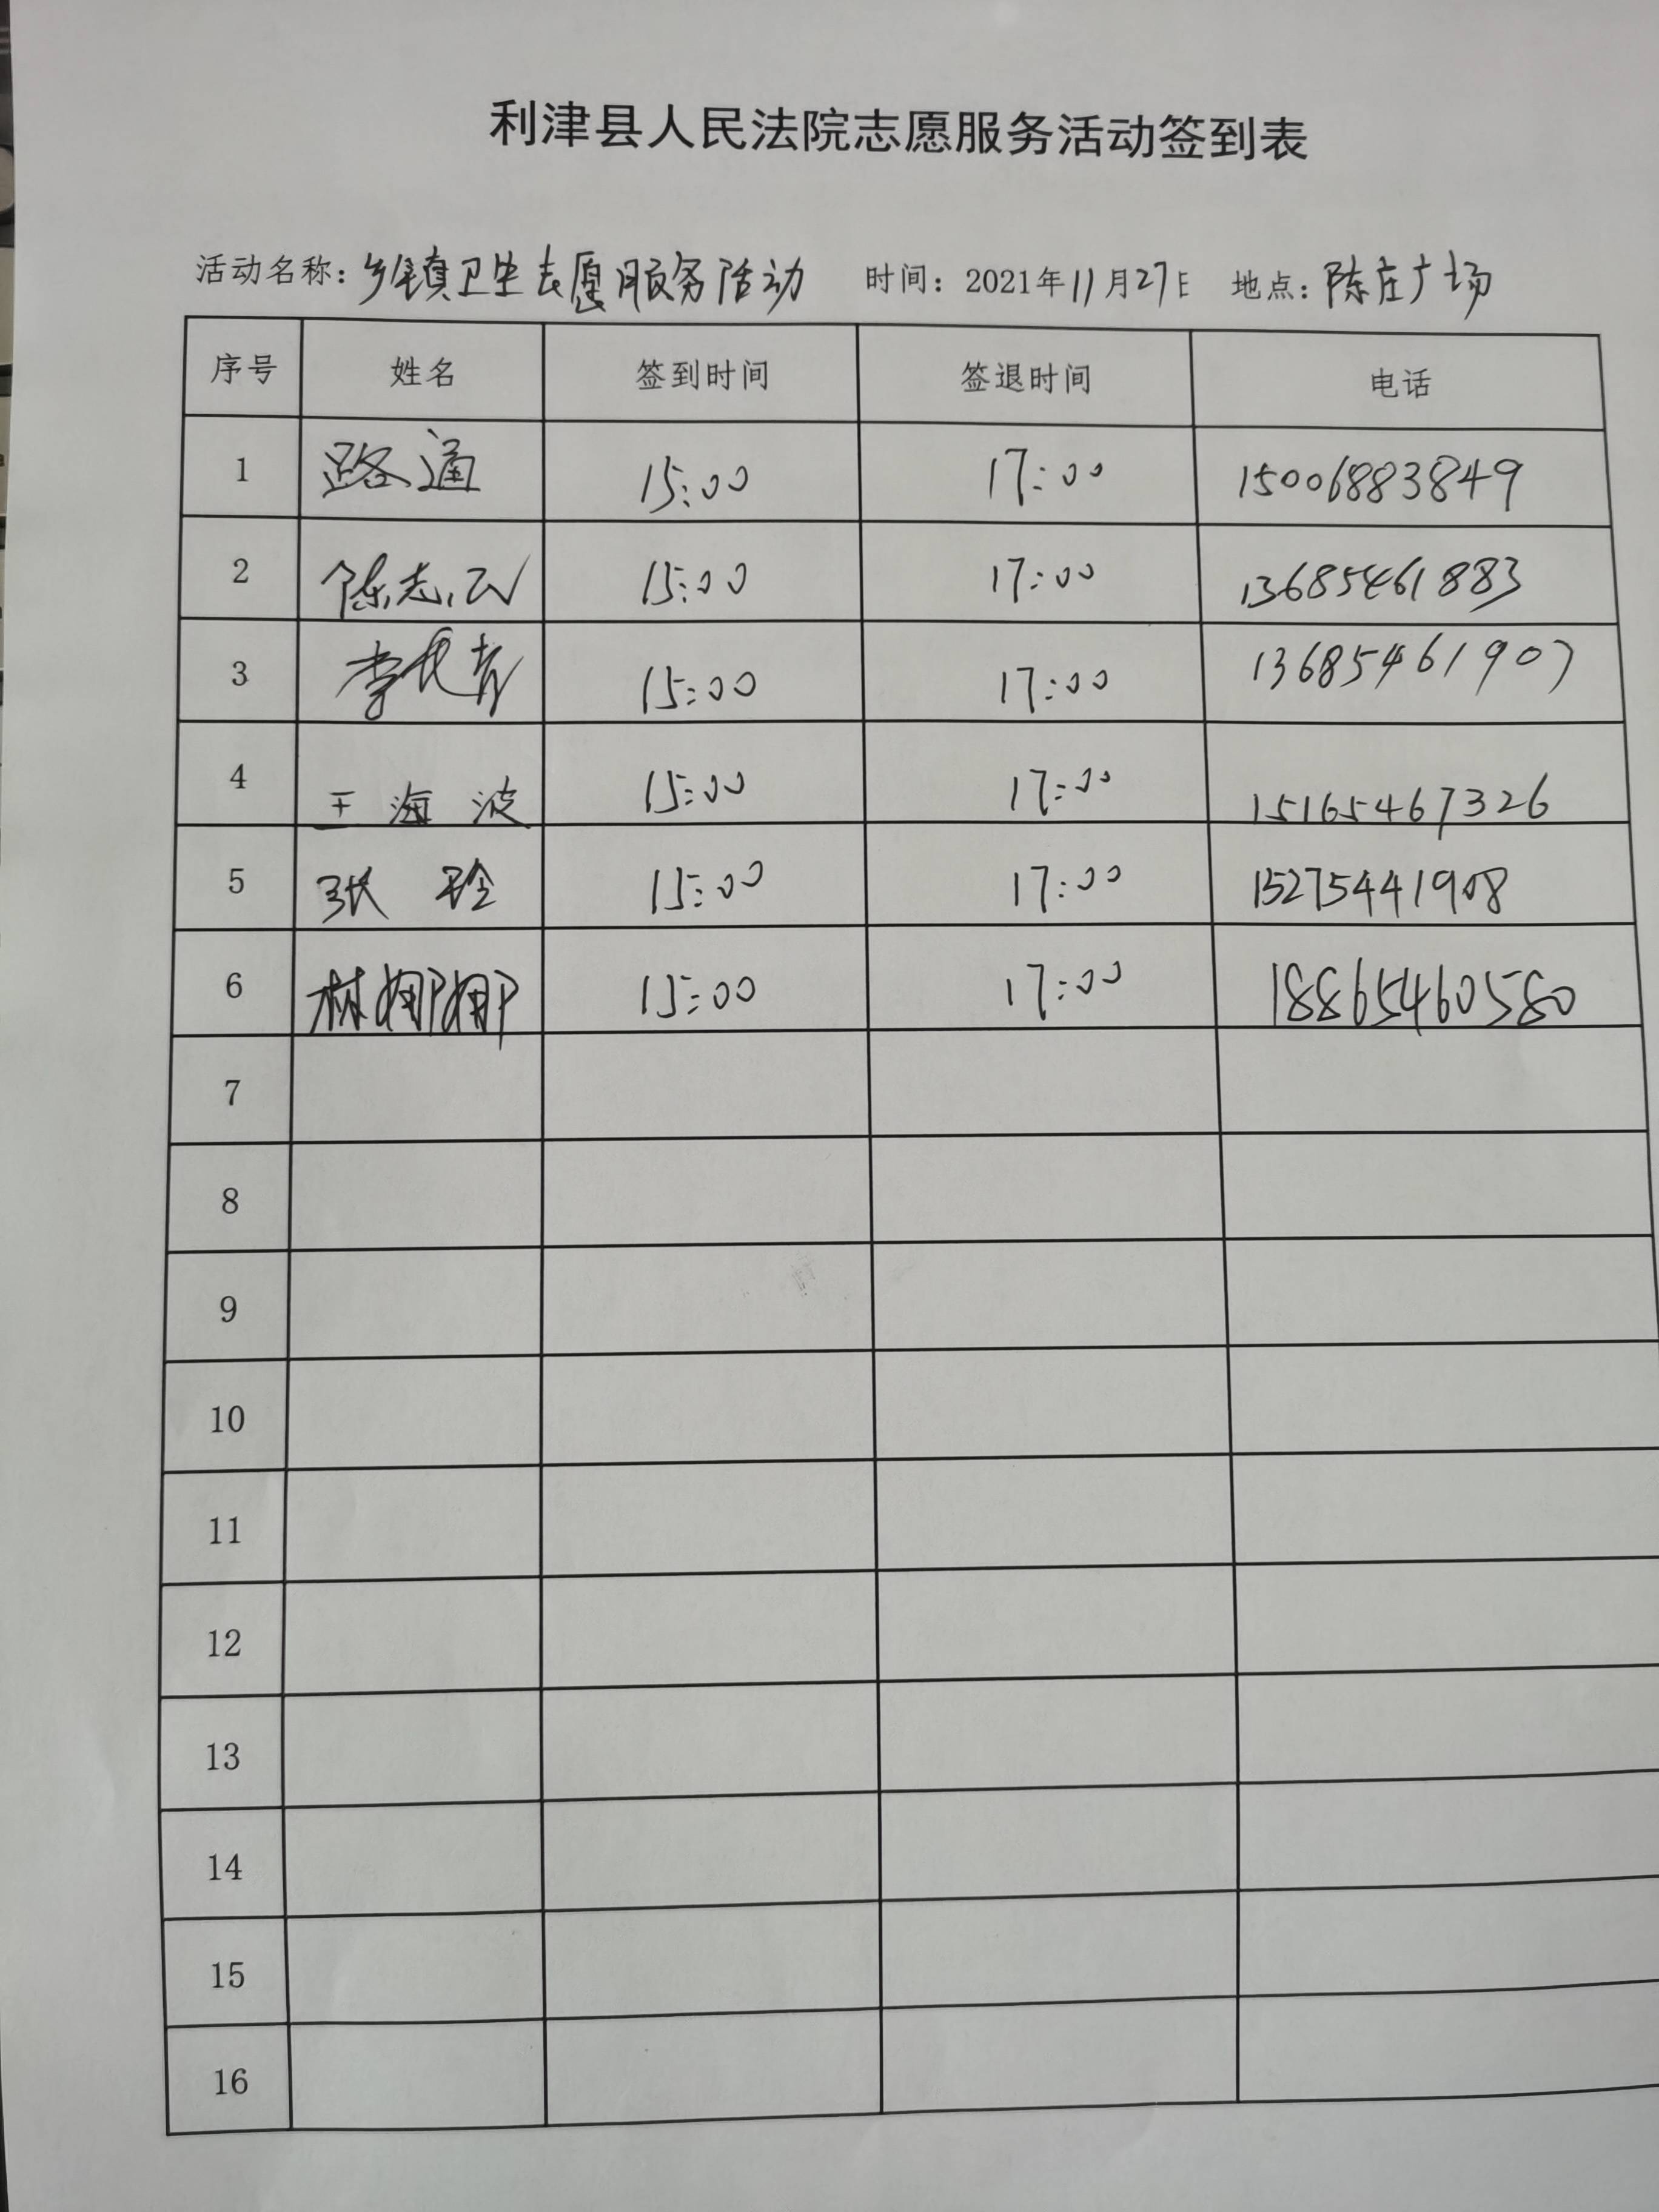 利津县人民法院志愿服务活动签到表
活动名称：乡镇卫生志愿服务活动 时间：2021年11月27日 地点：陈庄广场
序号 姓名 签到时间 签退时间 电话
1 路通 15:00 17:00 15006883849
2 陈志 15:00 17:00 13685461883
3 李 15:00 17:00 13685461907
4 王海波 15:00 17:00 15165467326
5 张玲 15:00 17:00 15275441908
6 林娜娜 15:00 17:00 18865460580
7
8
9
10
11
12
13
14
15
16